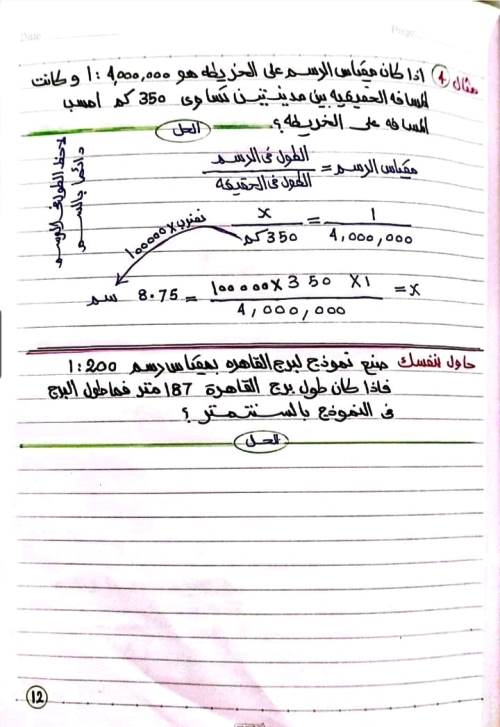 مثال 4 اذا كان مقياس الرسم على الخريطه هو 4,000,000 : 1 وكانت
المسافه الحقيقيه بين مدينتين تساوى 350 كم احسب
المسافه على الخريطه ؟
الحل
لاحظ الطول فى الرسم
دائما بالسم
مقياس الرسم = الطول فى الرسم / الطول فى الحقيقه
1 / 4,000,000 = x / 350 كم
نضرب x 100000
x = 1 x 350 x 100000 / 4,000,000 = 8.75 سم
حاول بنفسك صنع نموذج لبرج القاهره بمقياس رسم 200 : 1
فاذا كان طول برج القاهرة 187 متر فما طول البرج
فى النموذج بالسنتمتر ؟
الحل
12